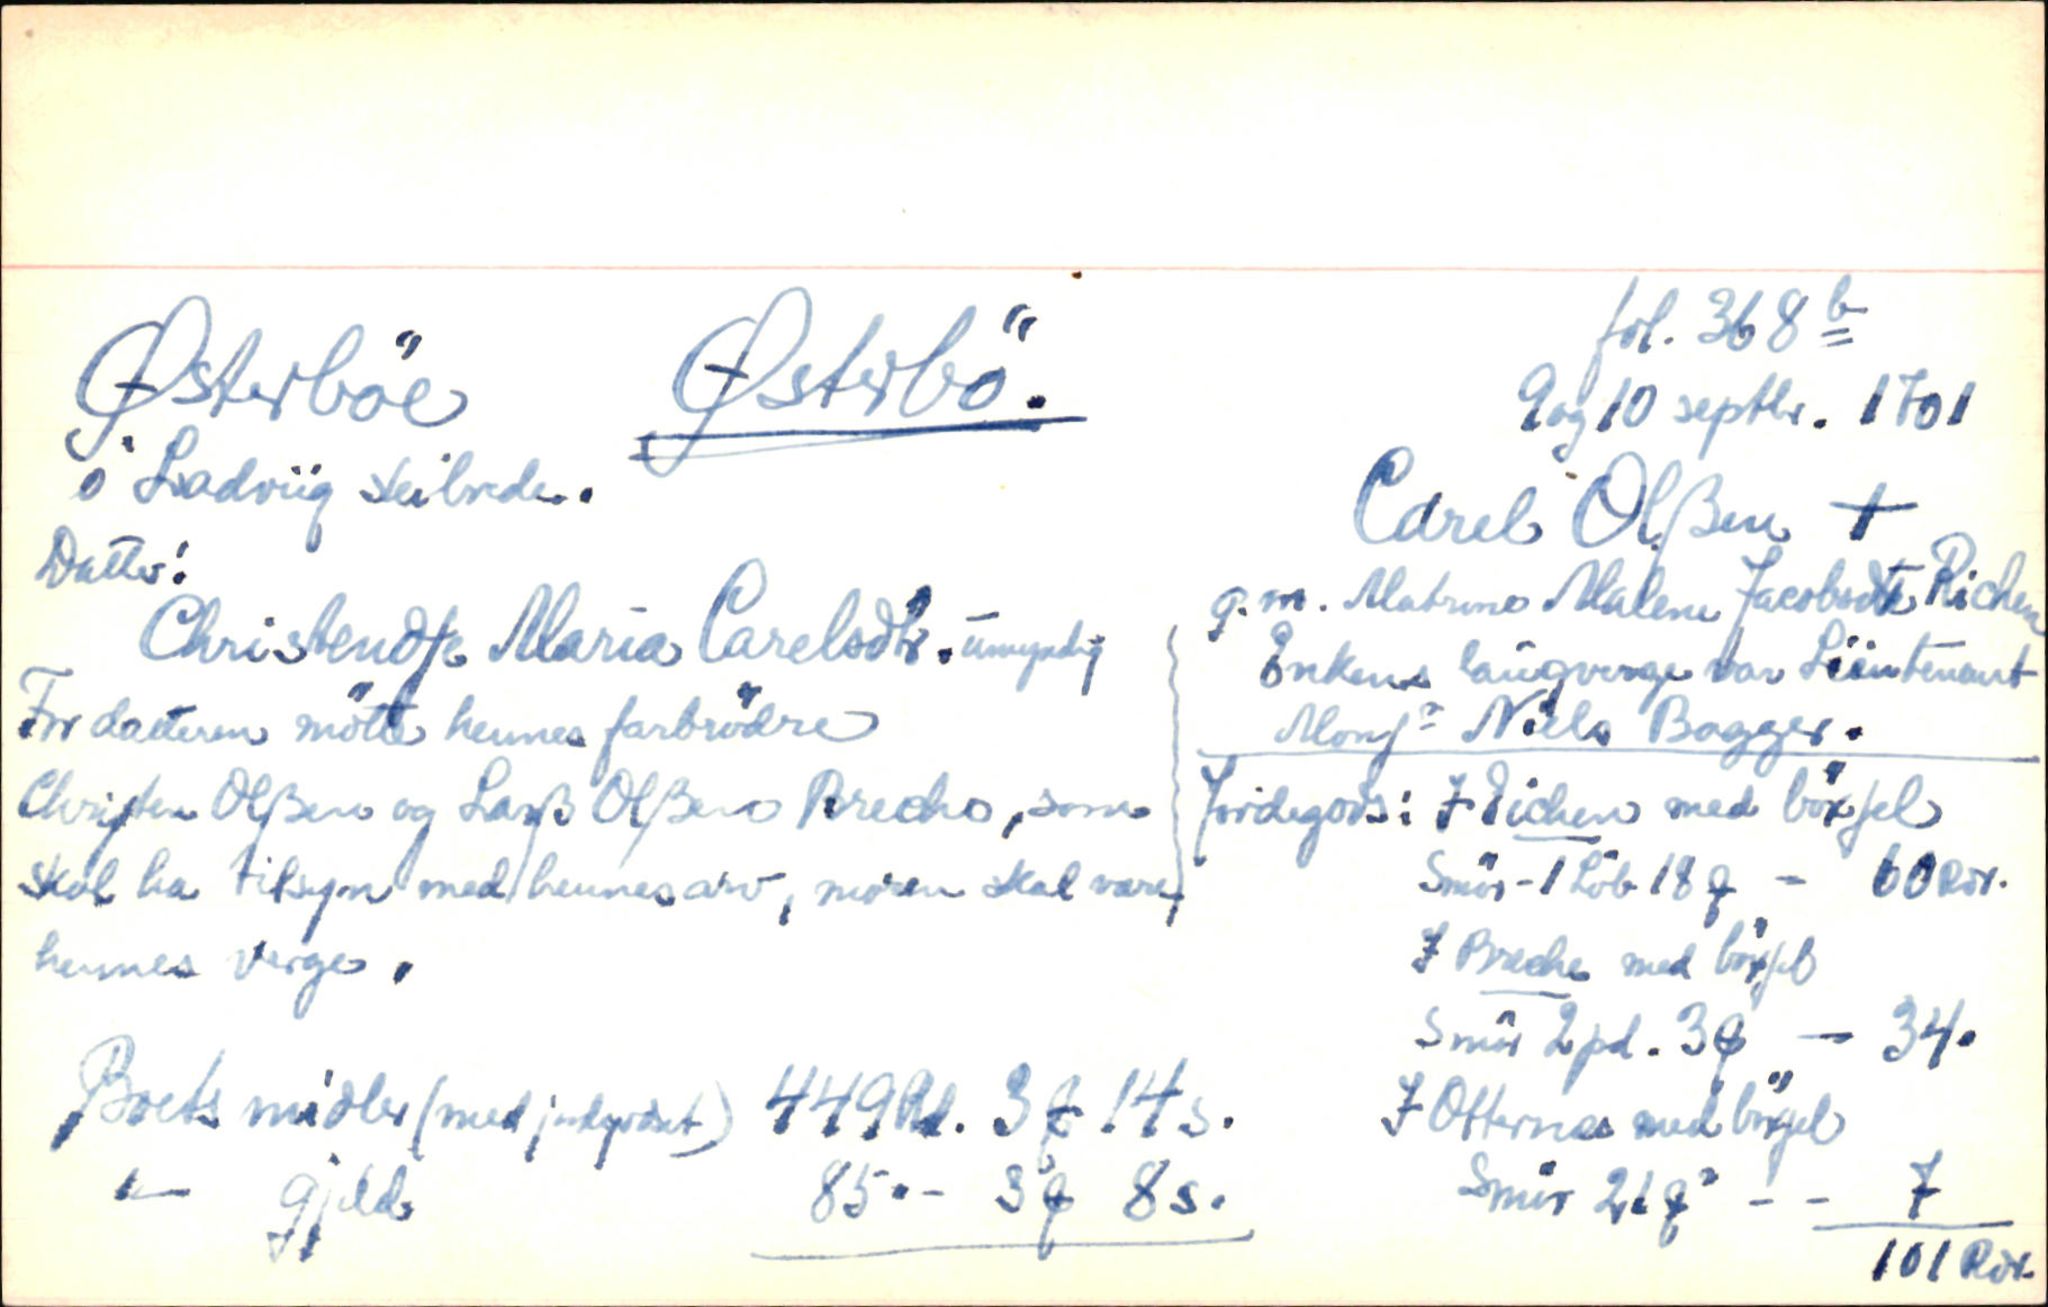 Østerböe Østerbö.
i Ladviig skibrede.
Datter:
Christendtje Maria Carelsdtr. umyndig
For datteren mötte hennes farbrödre
Christen Olßen og Larß Olßen Brecho, som
skal ha tilsyn med hennes arv, moren skal være
hennes verge.
Boets midler (med jordgodset) 449 Rd. 3 14 s.
— gjeld 85.- 3 8 s.
fol. 368 b
9 og 10 septbr. 1701
Carel Olßen †
g. m. Matrone Malene Jacobsdtr Richen
Enkens laugverge var Lieutenant
Monsr Niels Bagger.
Jordegods: I Eichen med böxsel
Smör - 1 Löb 18 - 60 Rdr.
I Breche med böxsel
Smör 2 pd. 3 - 34.
I Otternes med böxsel
Smör 21 - - 7
101 Rdr.